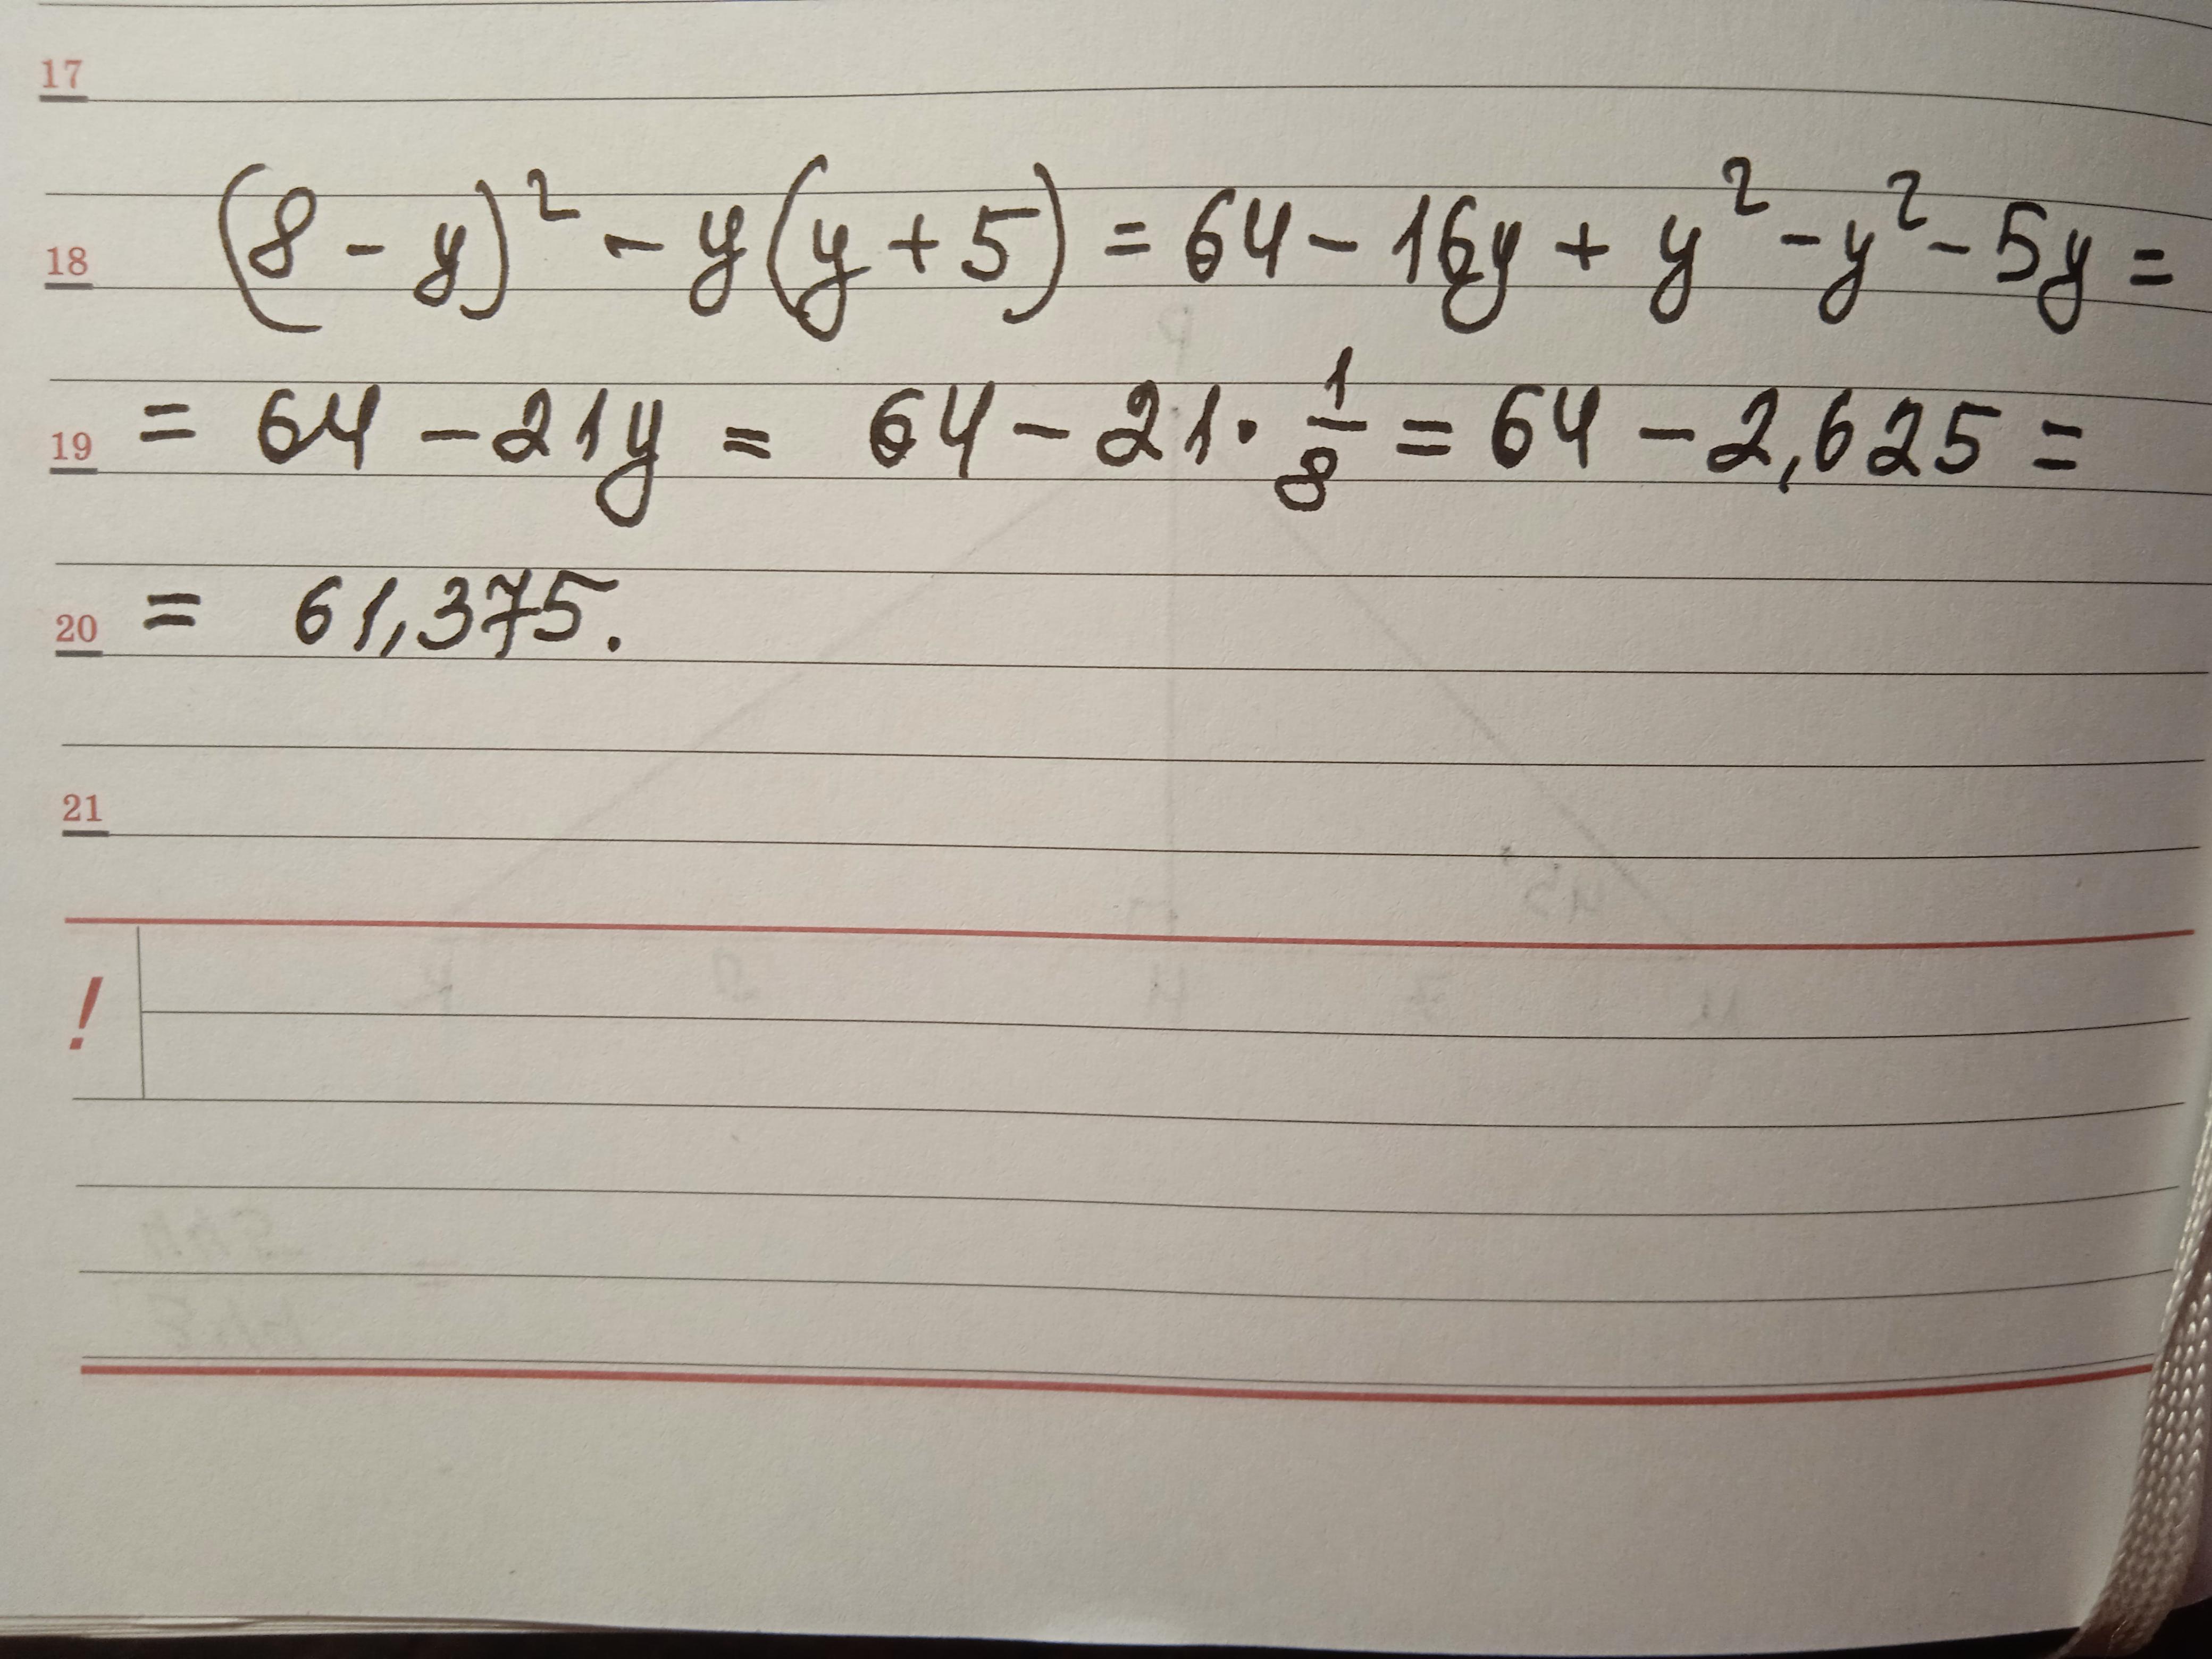 17
18 (8 - y)² - y(y + 5) = 64 - 16y + y² - y² - 5y =
19 = 64 - 21y = 64 - 21 · 1/8 = 64 - 2,625 =
20 = 61,375.
21
!